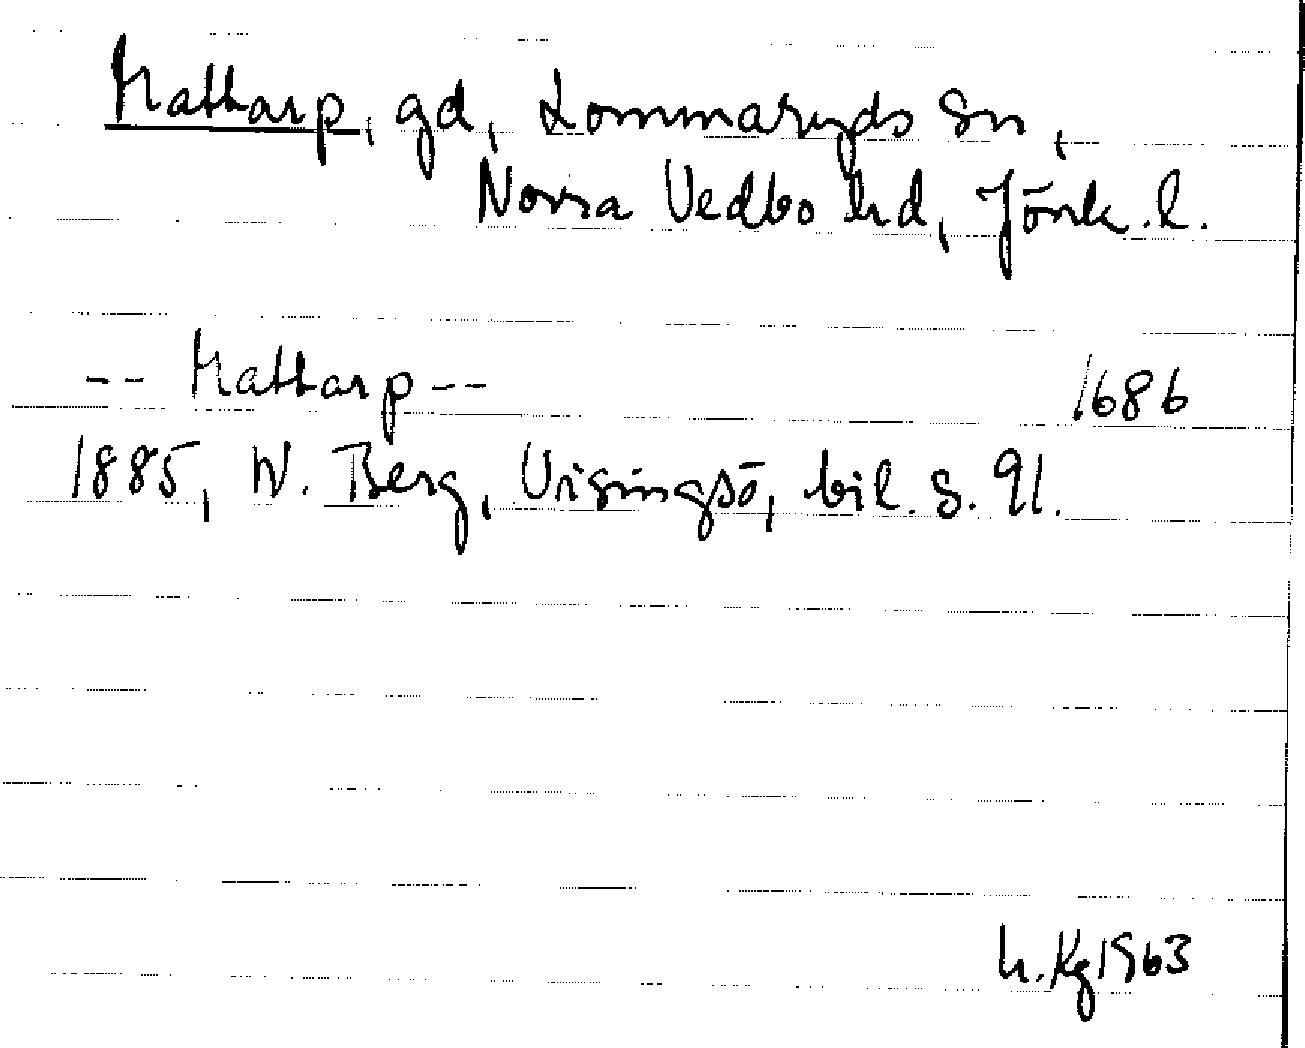 Mattarp, gd, Lommaryds sn,
Norra Vedbo hd, Jönk. l.
-- Mattarp -- 1686
1885, W. Berg, Visingsö, bil. s. 91.
h. Kg 1963